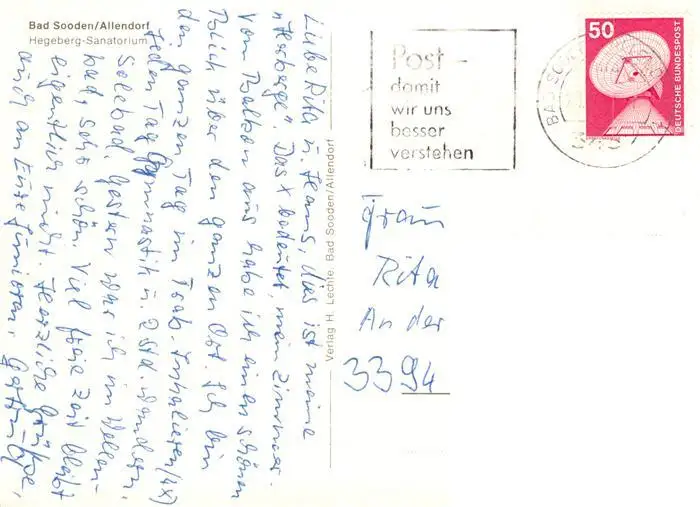 Bad Sooden/Allendorf
Hegeberg-Sanatorium
Liebe Rita u. Hans, dies ist meine
"Herberge". Das x bedeutet, mein Zimmer.
Vom Balkon aus habe ich einen schönen
Blick über den ganzen Ort. Ich bin
den ganzen Tag im Trab. Inhalieren (4x)
jeden Tag Gymnastik u. 2 Std. wandern.
Solebad. Gestern war ich im Wellen-
bad, sehr schön. Viel freie Zeit bleibt
eigentlich nicht. Herzliche Grüße,
auch an Eure Junioren,
Verlag H. Lechte, Bad Sooden/Allendorf
Post -
damit
wir uns
besser
verstehen
50
DEUTSCHE BUNDESPOST
BAD SOODEN
Frau
Rita
An der
3394